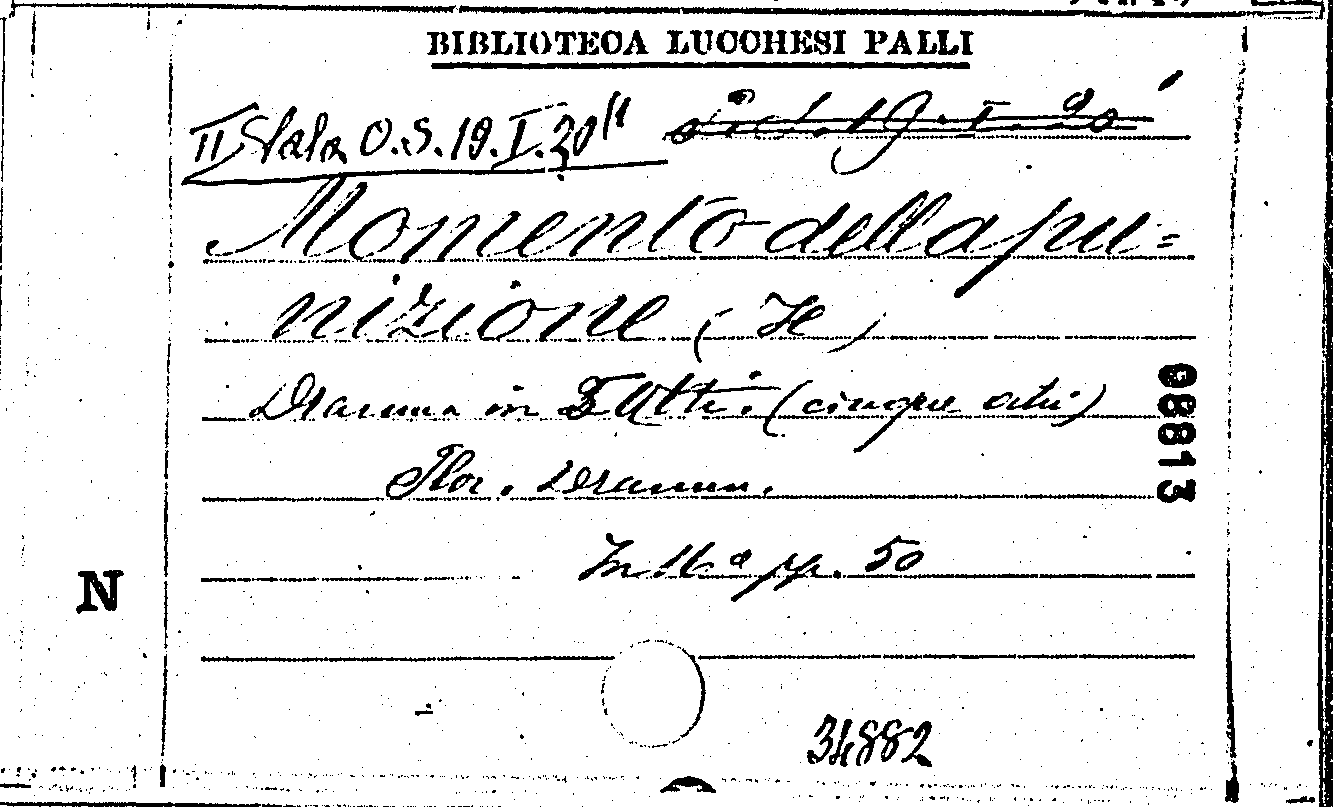 BIBLIOTECA LUCCHESI PALLI
II Sala O.S. 19. I. 20 II
19. I. 20
Momento della pu=
nizione (Il)
Dramma in 5 Atti. (cinque atti)
Flor. Dramm.
In 16° pp. 50
N
08813
34882